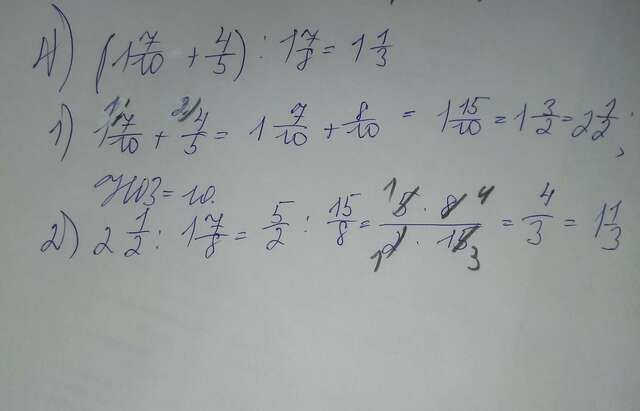 д) (1 7/10 + 4/5) : 1 7/8 = 1 1/3
1) 1 7/10 + 4/5 = 1 7/10 + 8/10 = 1 15/10 = 1 3/2 = 2 1/2;
НОЗ = 10.
2) 2 1/2 : 1 7/8 = 5/2 : 15/8 = 5 · 8 / 2 · 15 = 4/3 = 1 1/3